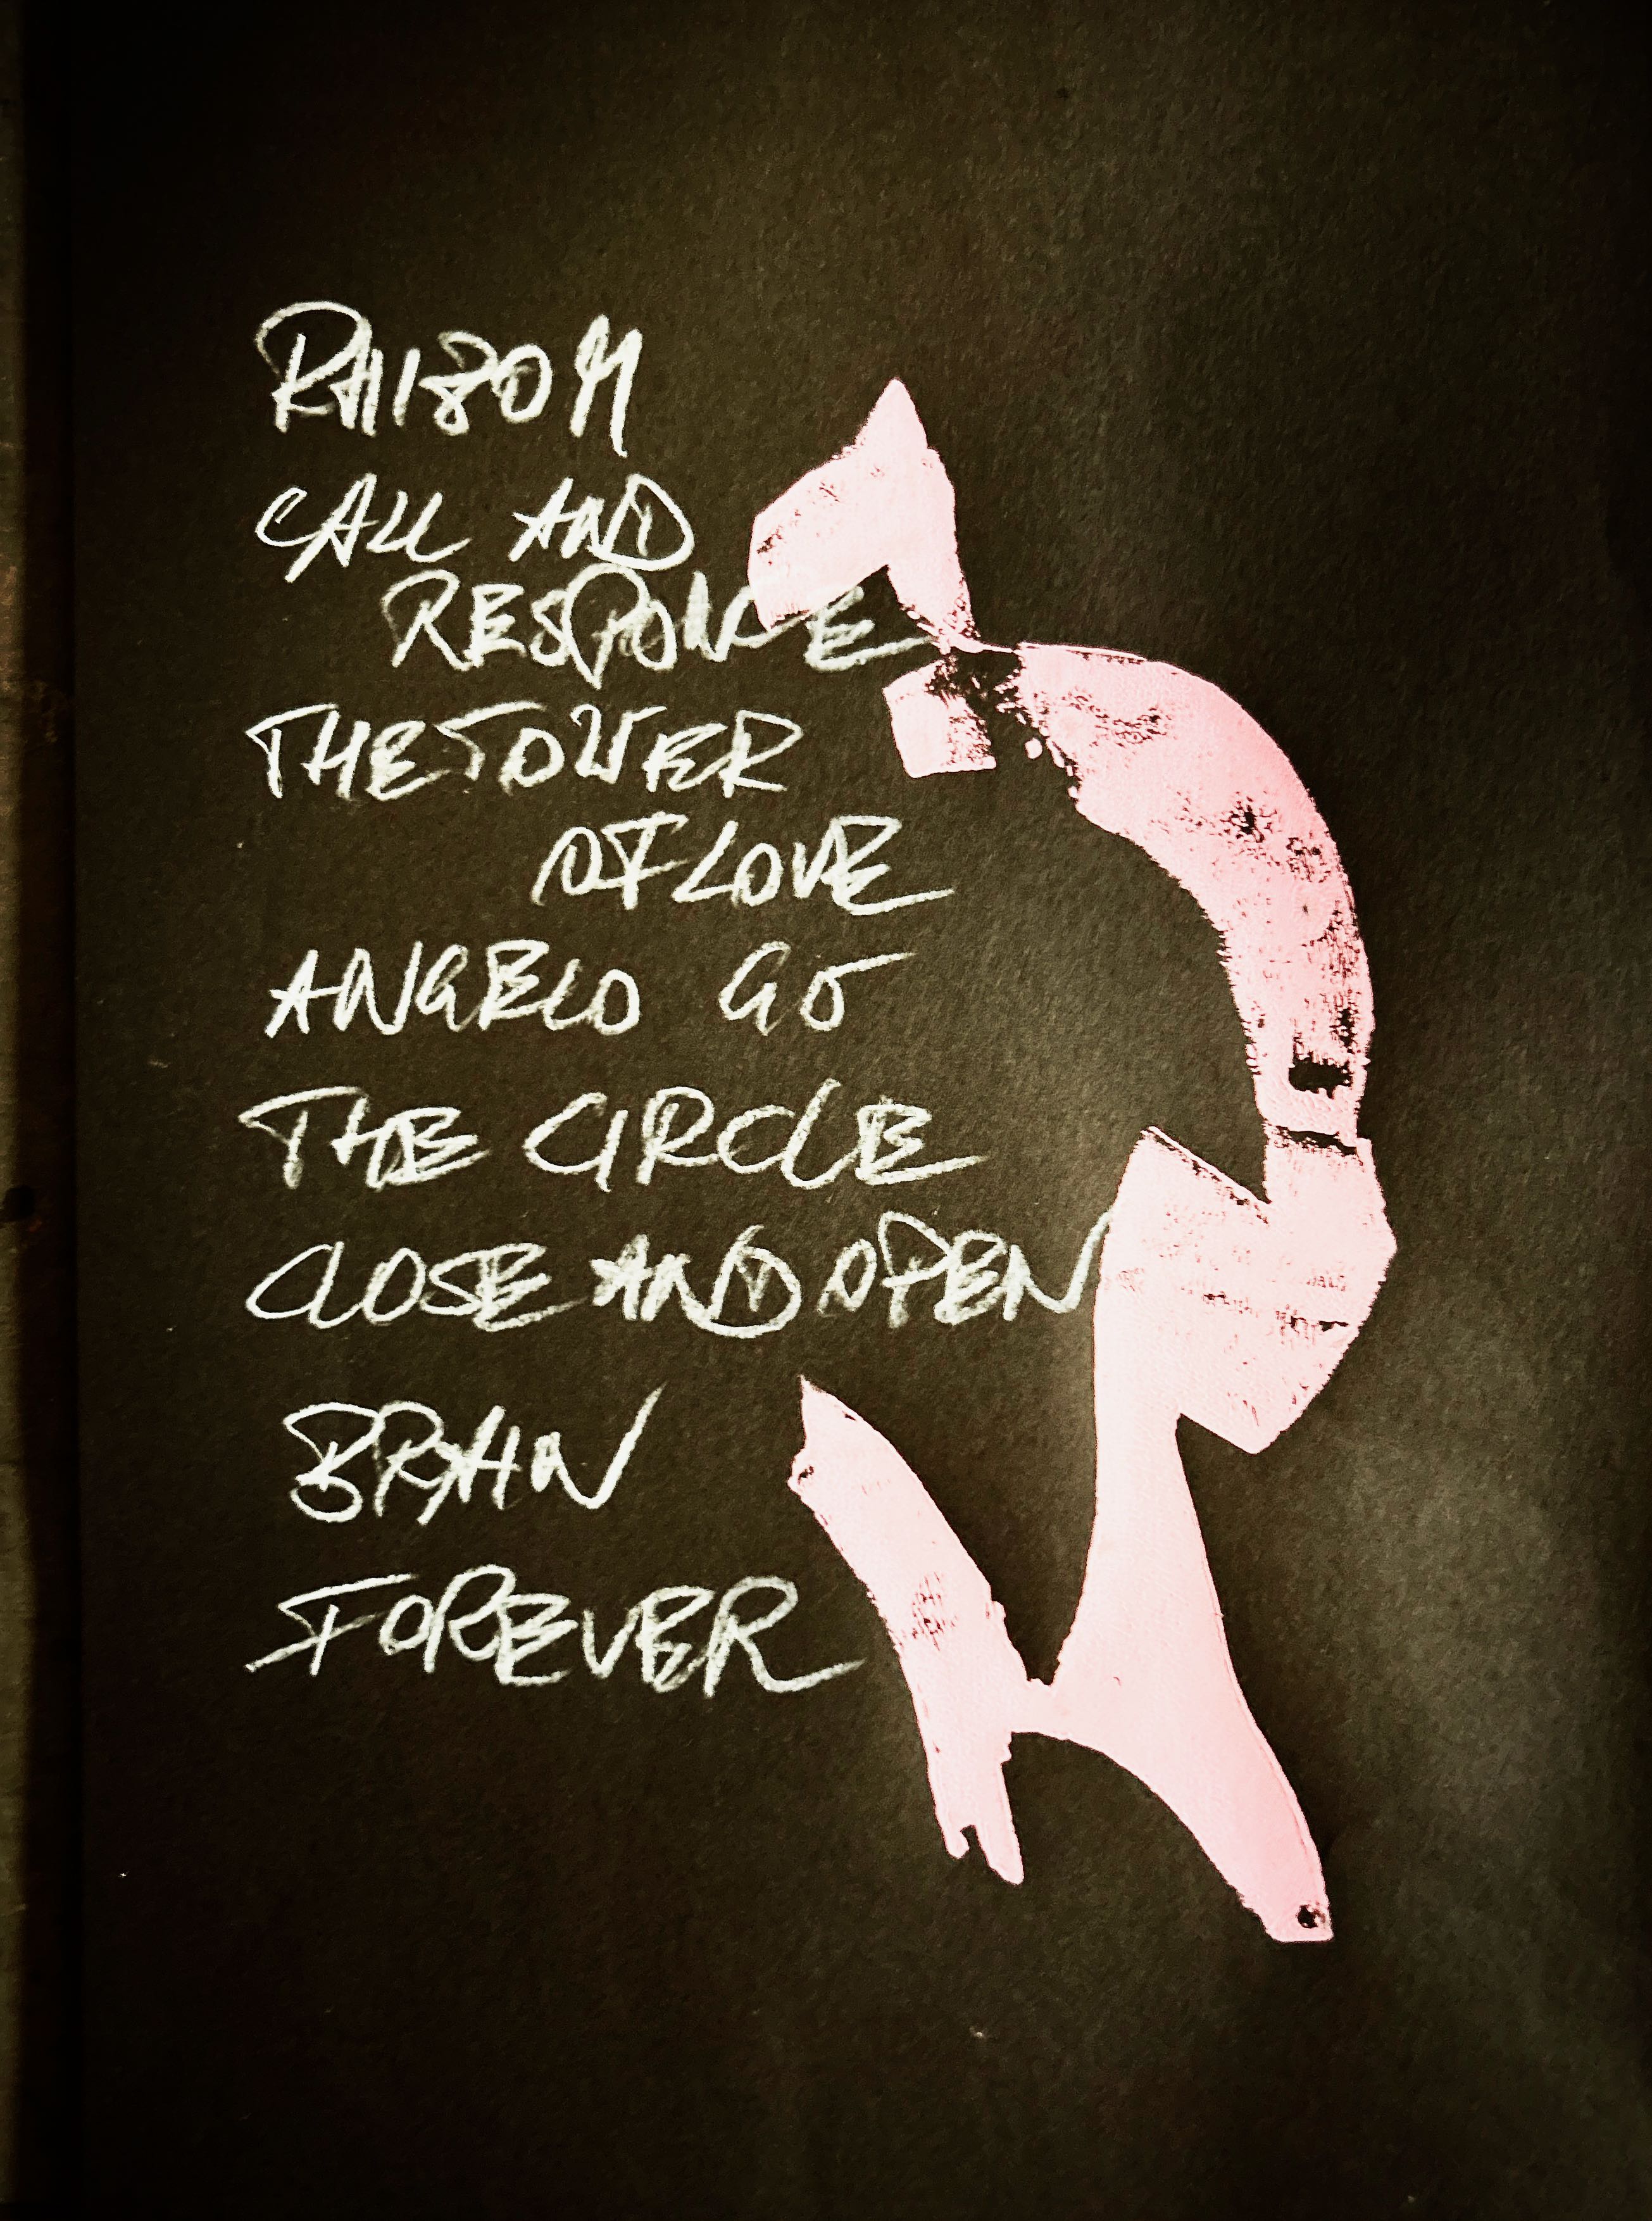 RHIZOM
CALL AND
RESPONCE
THE TOWER
OF LOVE
ANGELO GO
THE CIRCLE
CLOSE AND OPEN
BRAHN
FOREVER